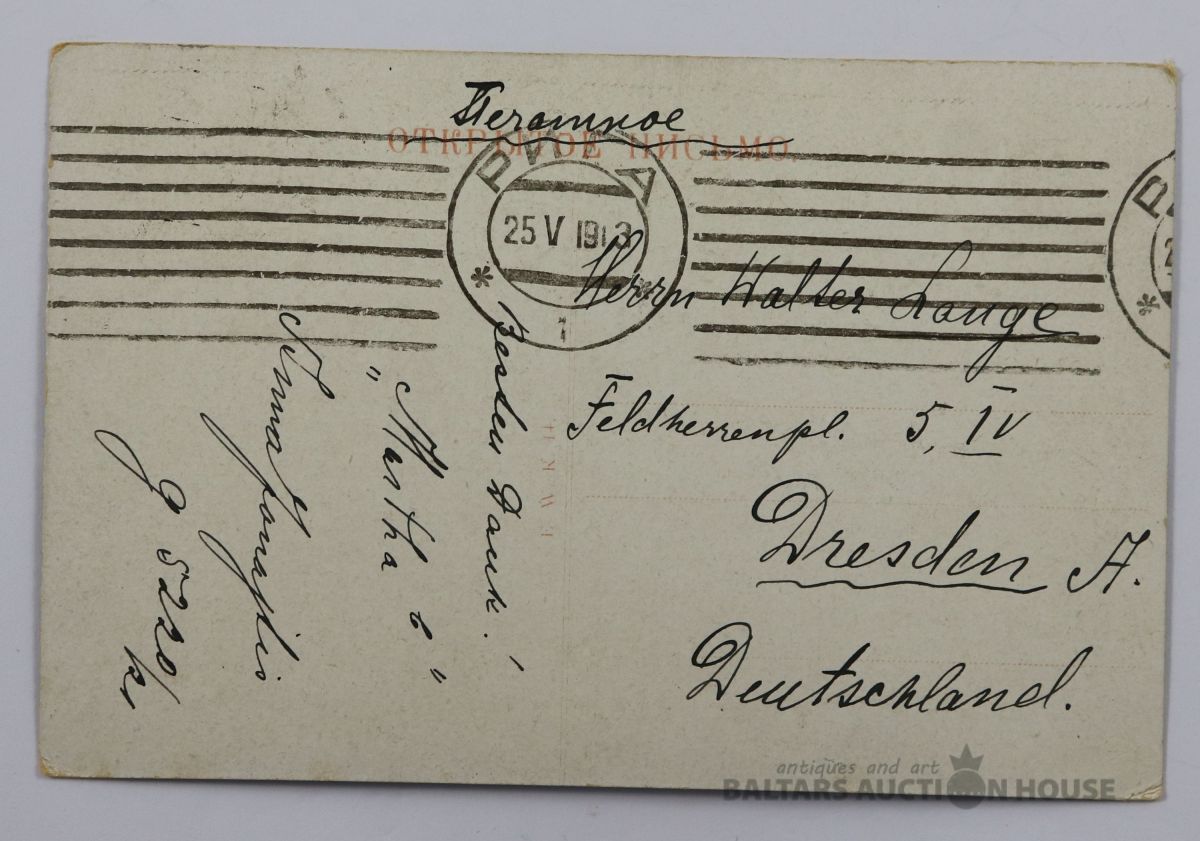 Печатное
ОТКРЫТОЕ ПИСЬМО.
РИГА
25 V 1913
*
*
1
Herrn Walter Lange
Feldherrenpl. 5, IV
Dresden A.
Deutschland.
Besten Dank!
"Martha
g 5220/
antiques and art
BALTARS AUCTION HOUSE